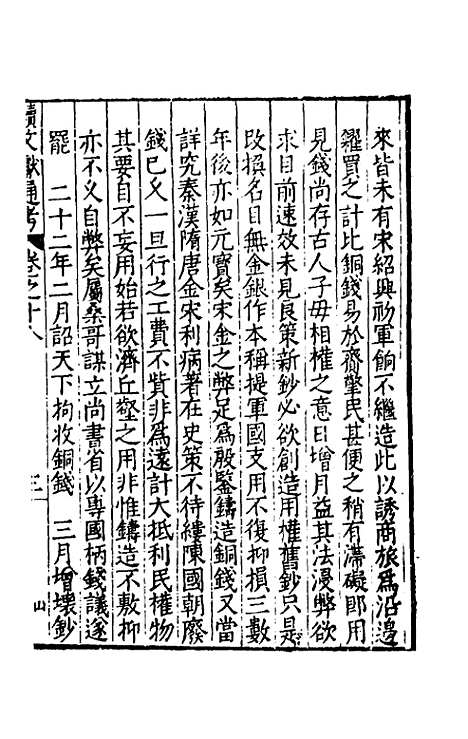 來皆未有宋紹興初軍餉不繼造此以誘商旅爲沿邊
糴買之計比銅錢易於齎擎民甚便之稍有滯礙即用
見錢尚存古人子母相權之意日增月益其法浸弊欲
求目前速效未見良策新鈔必欲創造用權舊鈔只是
改換名目無金銀作本稱提軍國支用不復抑損三數
年後亦如元寶矣宋金之弊足爲殷鑒鑄造銅錢又當
詳究秦漢隋唐金宋利病著在史策不待縷陳國朝廢
錢已久一旦行之工費不貲非爲遠計大抵利民權物
其要自不妄用始若欲濟丘壑之用非惟鑄造不敷抑
亦不久自弊矣屬桑哥謀立尚書省以專國柄錢議遂
罷　二十二年二月詔天下拘收銅錢　三月增壞鈔
續文獻通考 卷之十八 三 山